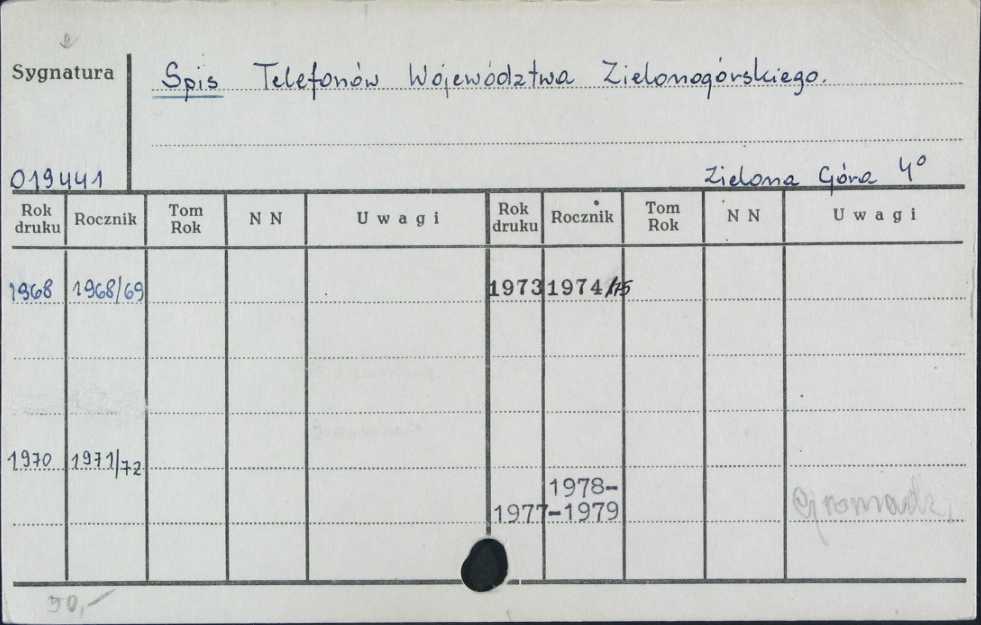 Sygnatura
Spis Telefonów Województwa Zielonogórskiego.
019441
Zielona Góra 4º
Rok druku Rocznik Tom Rok N N Uwagi Rok druku Rocznik Tom Rok N N Uwagi
1968 1968/69 1973 1974/75
1970 1971/72
1978-
1977-1979
Gromadz.
50,-